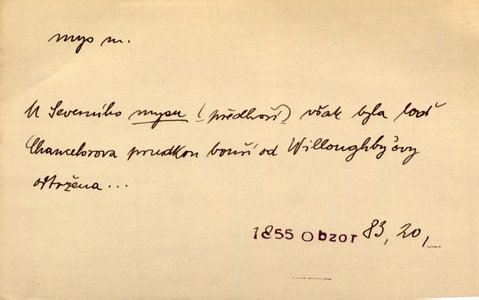 mys m.
U Severního mysu (předhoří) však byla loď
Chancelorova prudkou bouří od Willoughby'ovy
odtržena...
1855 Obzor 83, 20,